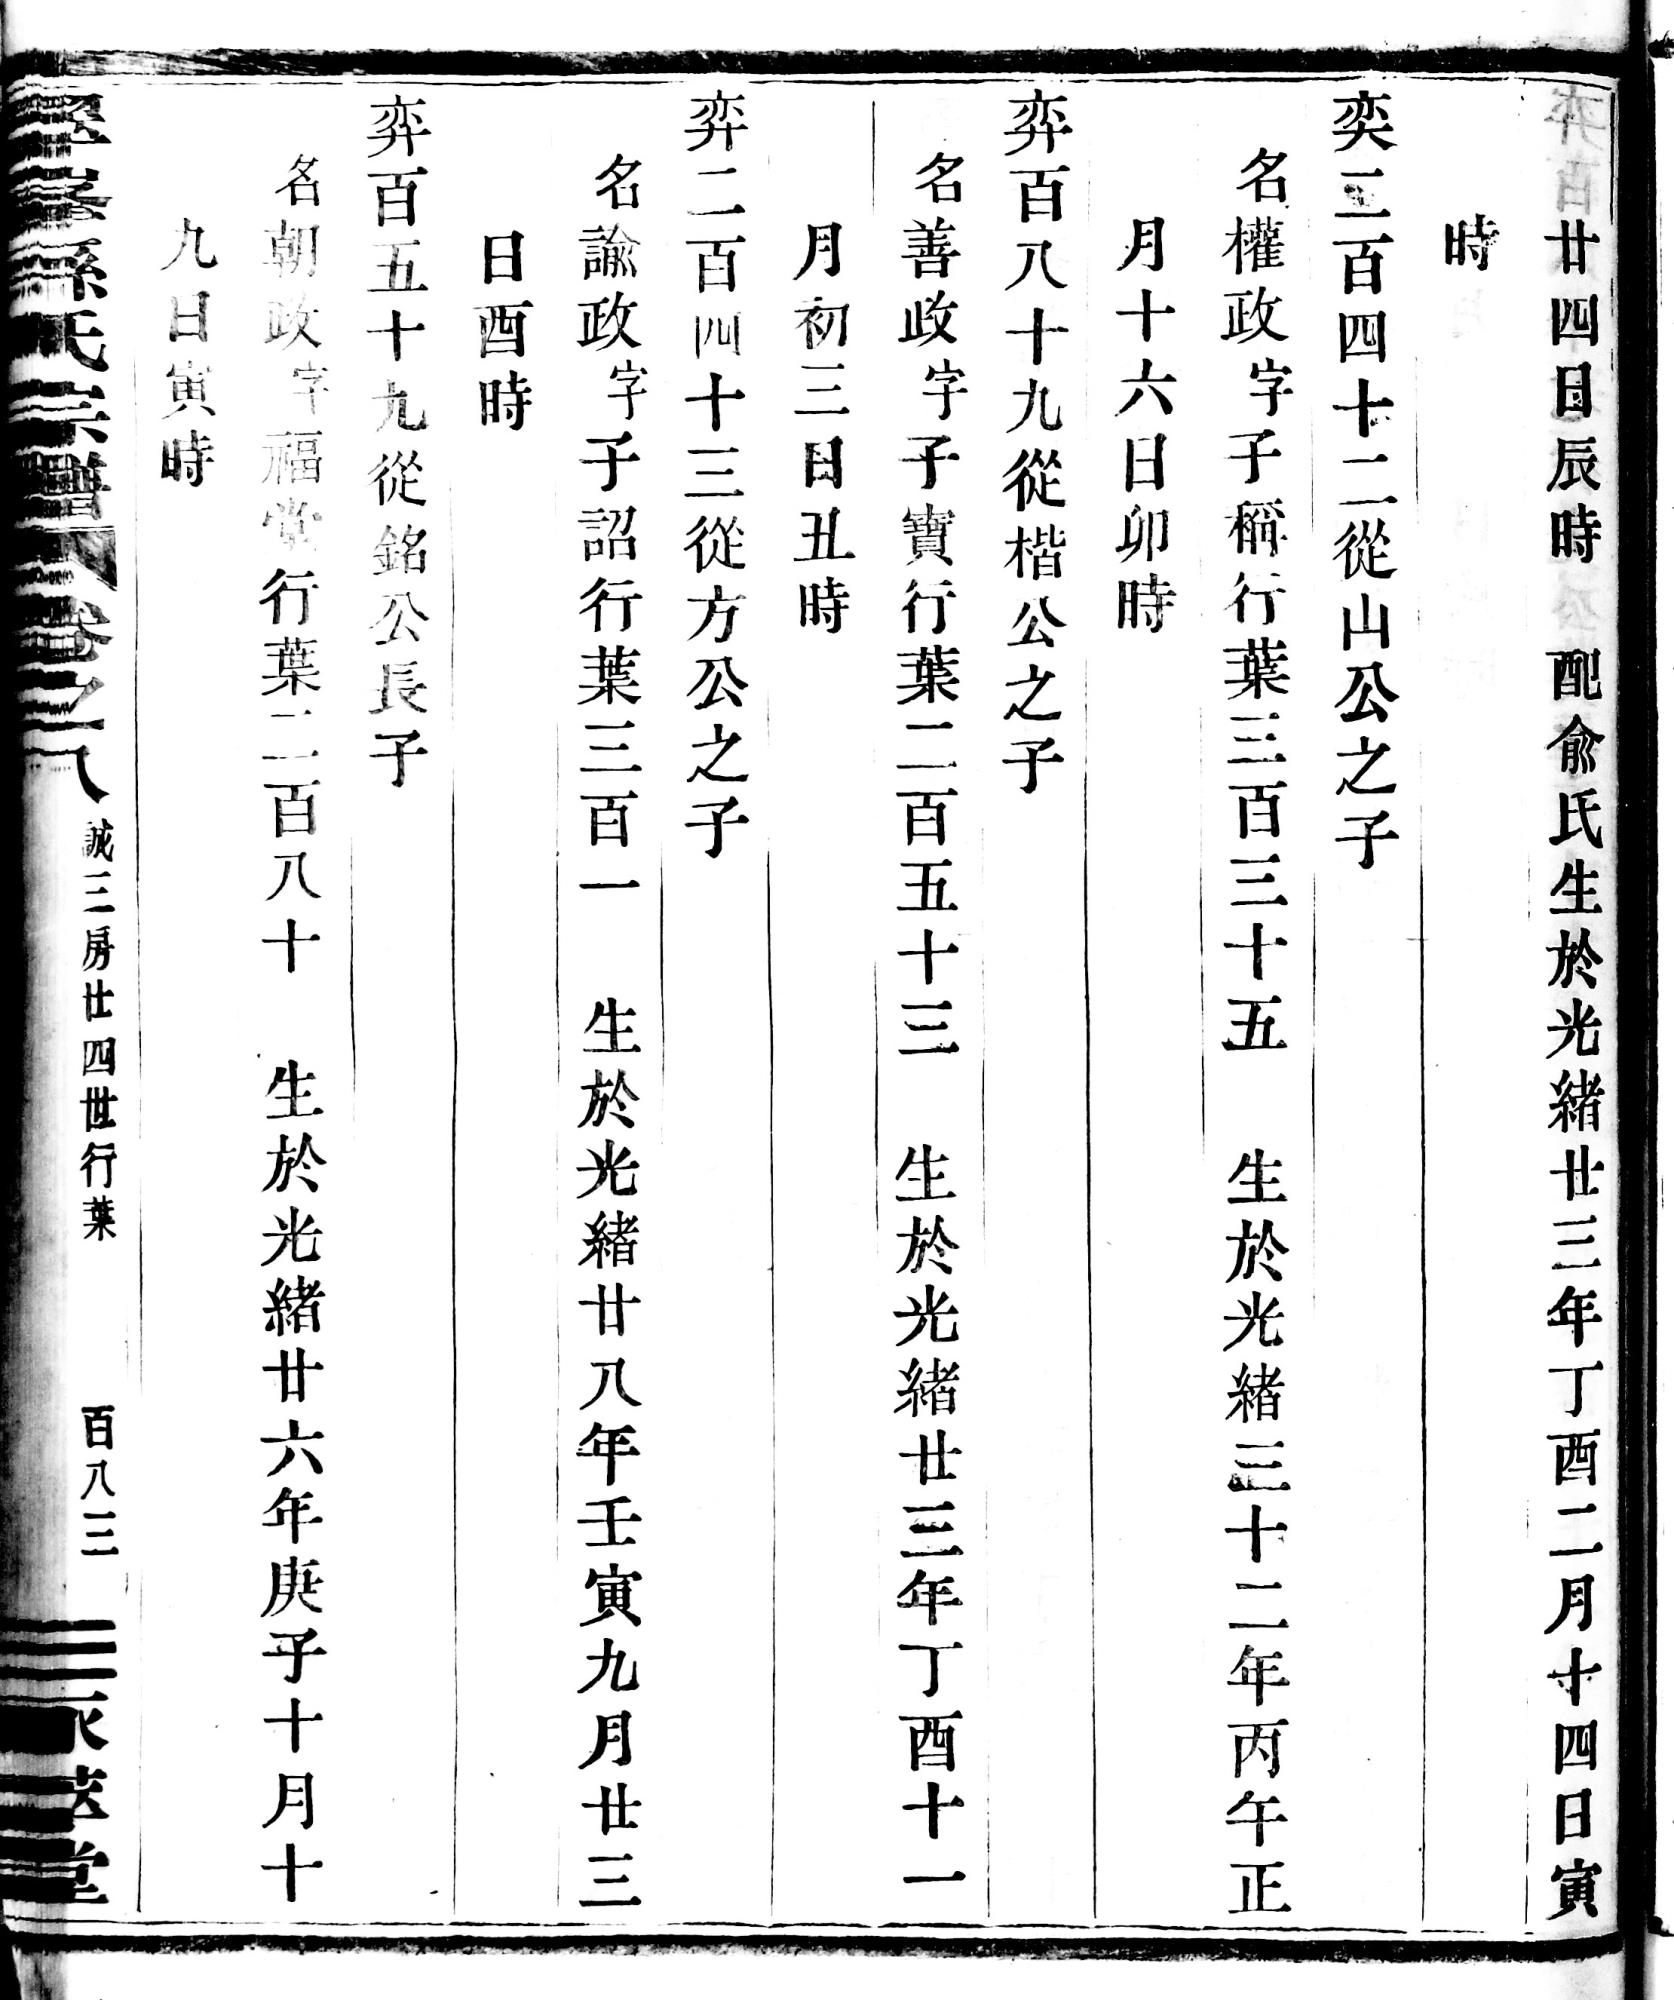 廿四日辰時 配俞氏生於光緒廿三年丁酉二月十四日寅
時
奕三百四十二從山公之子
名權政字子稱行葉三百三十五 生於光緒三十二年丙午正
月十六日卯時
弈百八十九從楷公之子
名善政字子寶行葉二百五十三 生於光緒廿三年丁酉十一
月初三日丑時
弈二百四十三從方公之子
名諭政字子詔行葉三百一 生於光緒廿八年壬寅九月廿三
日酉時
弈百五十九從銘公長子
名朝政字福堂行葉二百八十 生於光緒廿六年庚子十月十
九日寅時
孫氏宗譜 卷之八 誠三房廿四世行葉 百八三 堂